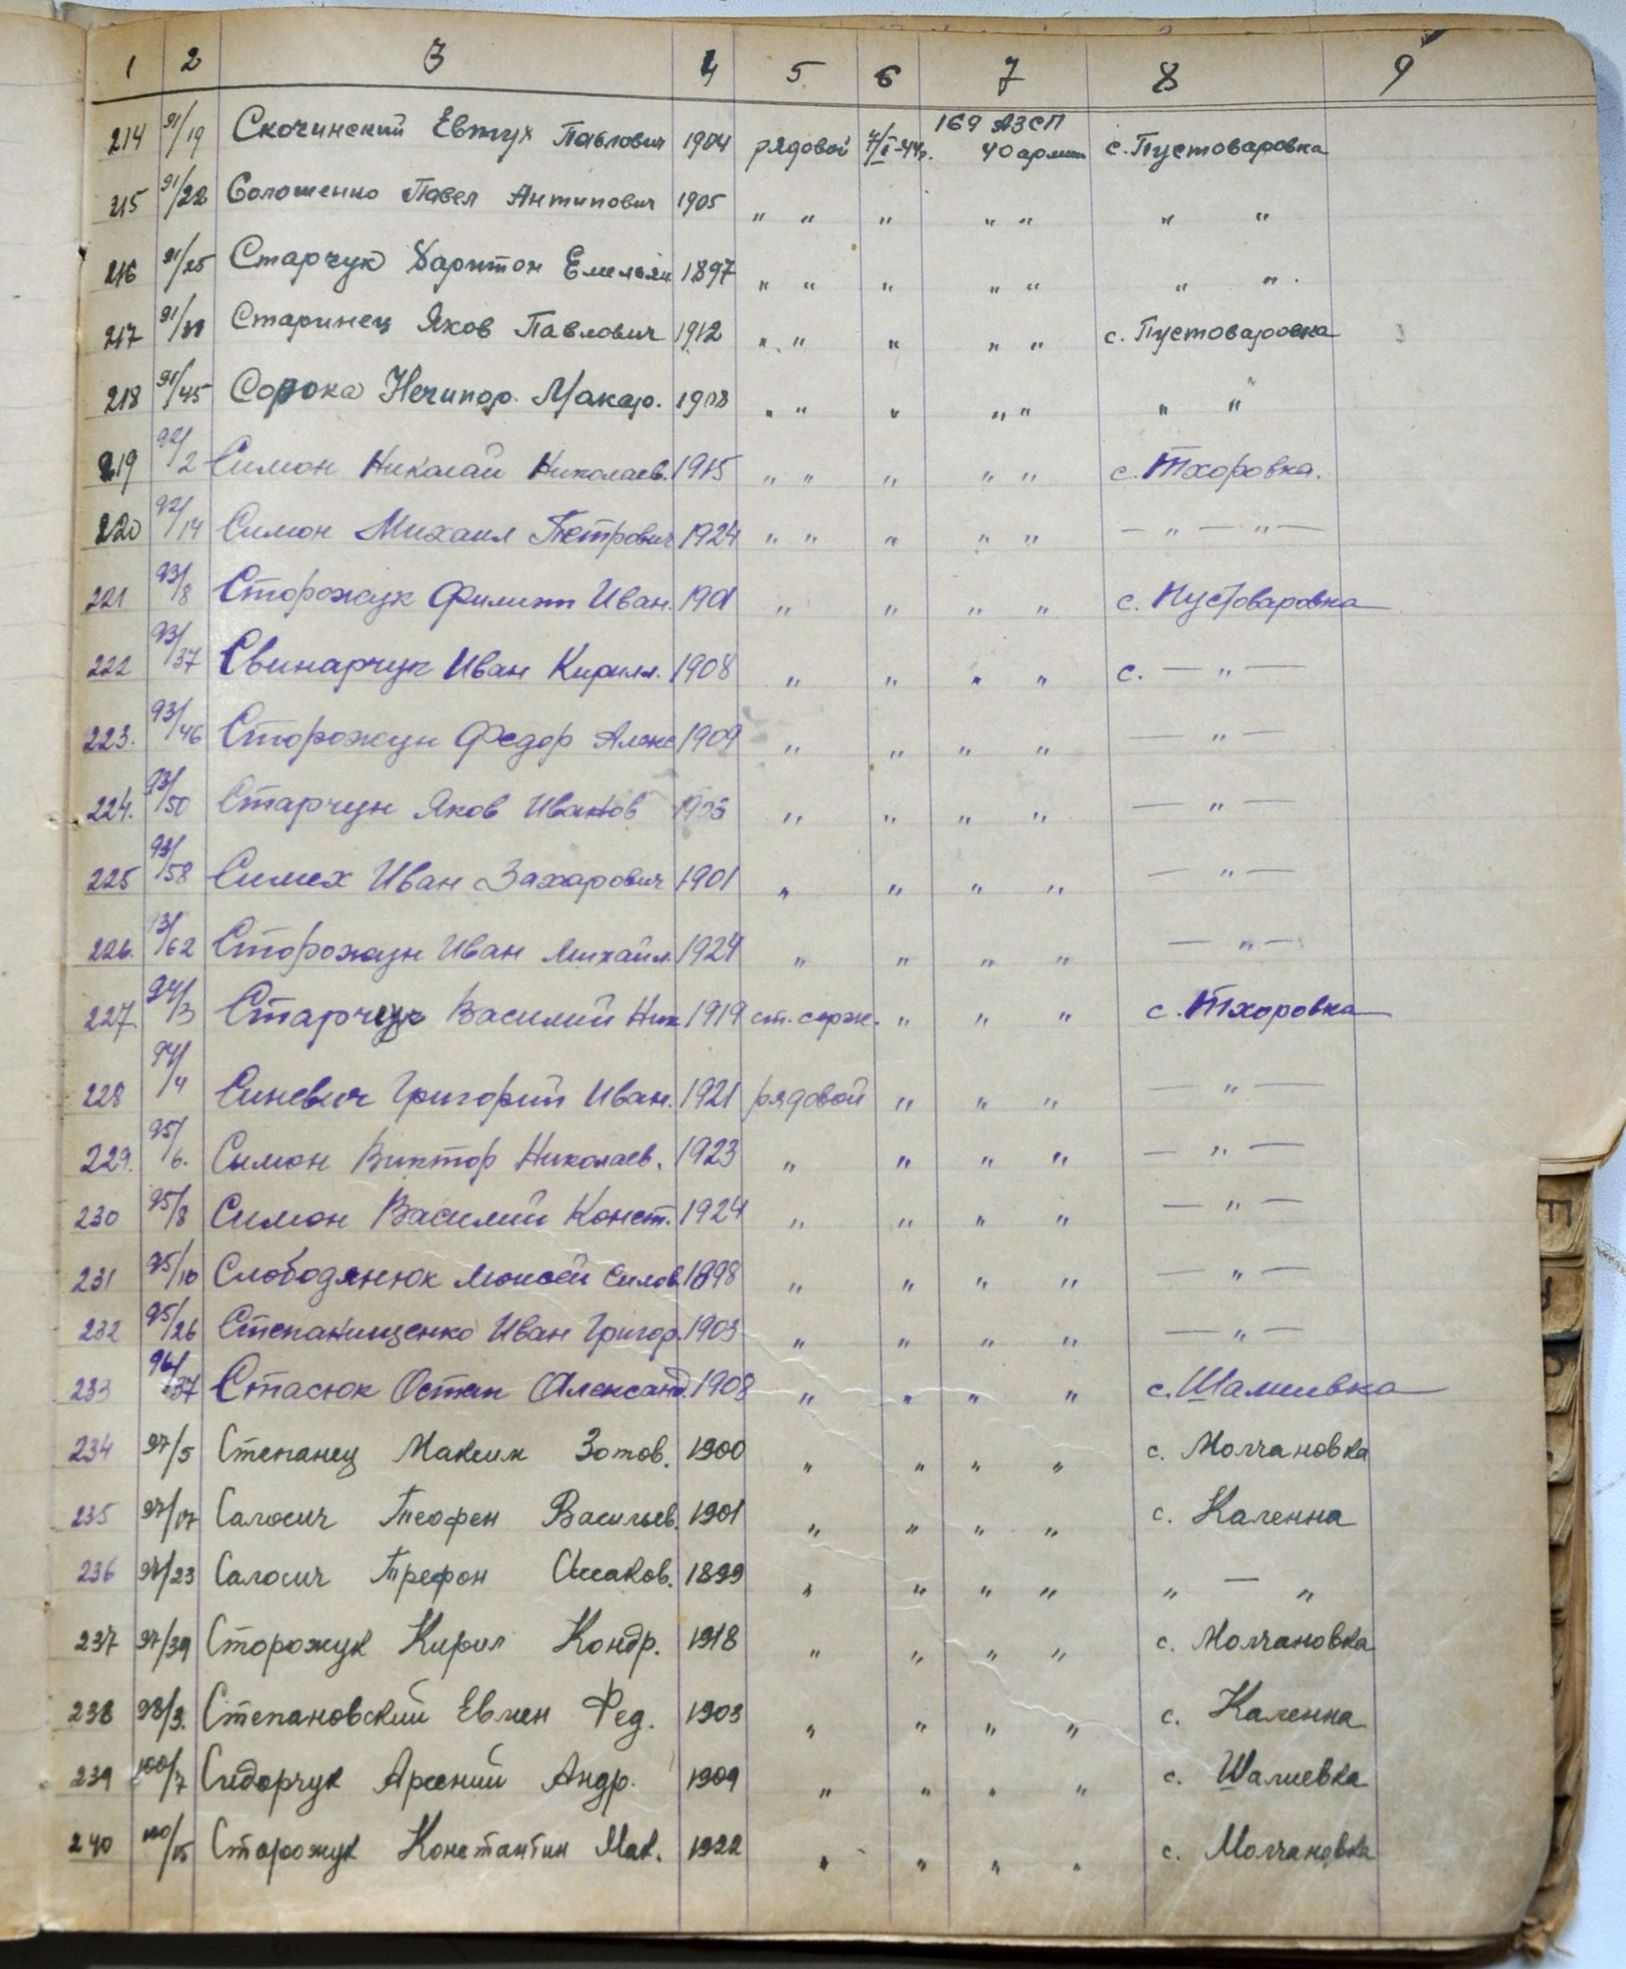 1 2 3 4 5 6 7 8 9
214 91/19 Скочинский Евтух Павлович 1904 рядовой 7/I-44г. 169 АЗСП 40 армии с. Пустоваровка
215 91/22 Солошенко Павел Антипович 1905 " " " " " " "
216 91/25 Старчук Харитон Емельян 1897 " " " " " " "
217 Старинец Яков Павлович 1912 " " " " " с. Пустоваровка
218 91/45 Сорока Нечипор. Макар. 1908 " " " " " " "
219 92/2 Симон Николай Николаев. 1915 " " " " " с. Тхоровка.
220 92/14 Симон Михаил Петрович 1924 " " " " " — " — " —
221 93/8 Сторожук Филипп Иван. 1901 " " " " с. Пустоваровка
222 93/37 Свинарчук Иван Кирилл. 1908 " " " " с. — " —
223. 93/46 Сторожук Федор Алекс 1909 " " " " — " —
224. 93/50 Старчук Яков Иванов " " " " — " —
225 93/58 Симех Иван Захарович 1901 " " " " — " —
226. 93/62 Сторожук Иван Михайл. 1924 " " " " — " —
227. 94/3 Старчук Василий Ник 1919 ст. серж. " " " с. Тхоровка
228 94/4 Синевич Григорий Иван. 1921 рядовой " " " — " —
229. 95/6. Сымон Виктор Николаев. 1923 " " " " — " —
230 95/8 Симон Василий Конст. 1924 " " " " — " —
231 95/10 Слободянюк Моисей Силов 1898 " " " " — " —
232 95/26 Степанищенко Иван Григор. 1903 " " " " — " —
233 96/37 Стасюк Остап Александ. 1908 " " " " с. Шамиевка
234 97/5 Степанец Максим Зотов. 1900 " " " " с. Молчановка
235 97/17 Салосич Теофен Васильев. 1901 " " " " с. Каленна
236 97/23 Салосич Трефон 1899 " " " " " — "
237 97/39 Сторожук Кирил Кондр. 1918 " " " " с. Молчановка
238 98/9. Степановский Евмен Фед. 1903 " " " " с. Каленна
239 100/7 Сидорчук Арсений Андр. 1909 " " " " с. Шалиевка
240 100/15 Сторожук Константин Мак. 1922 " " " " с. Молчановка